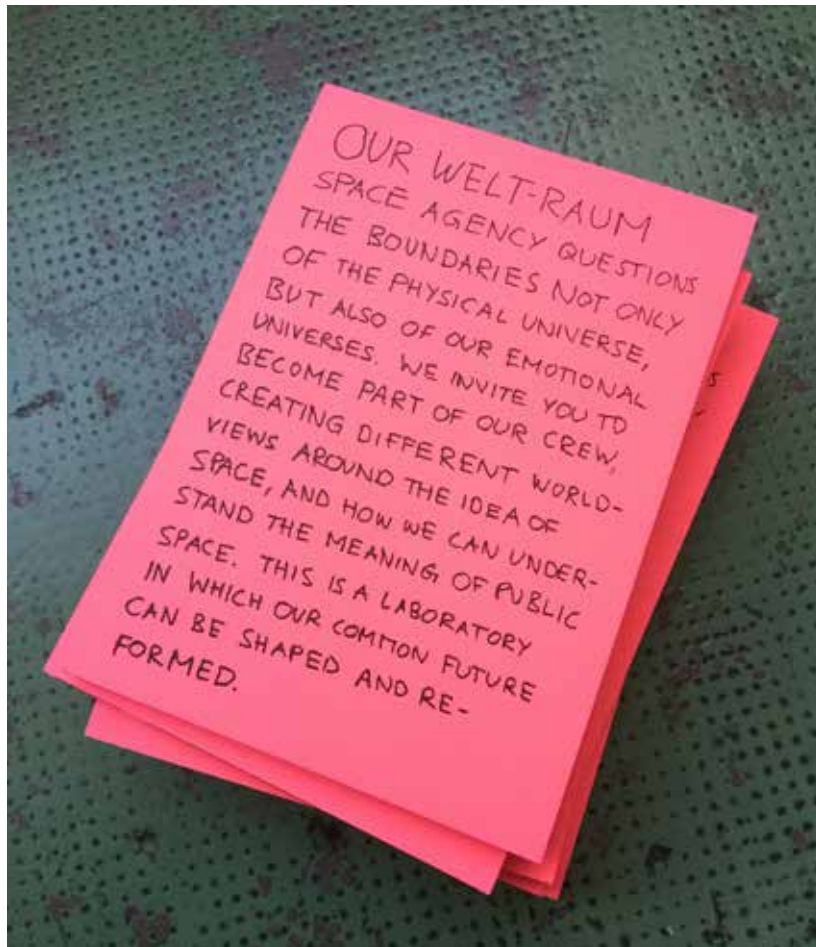 OUR WELT-RAUM
SPACE AGENCY QUESTIONS
THE BOUNDARIES NOT ONLY
OF THE PHYSICAL UNIVERSE,
BUT ALSO OF OUR EMOTIONAL
UNIVERSES. WE INVITE YOU TO
BECOME PART OF OUR CREW,
CREATING DIFFERENT WORLD-
VIEWS AROUND THE IDEA OF
SPACE, AND HOW WE CAN UNDER-
STAND THE MEANING OF PUBLIC
SPACE. THIS IS A LABORATORY
IN WHICH OUR COMMON FUTURE
CAN BE SHAPED AND RE-
FORMED.